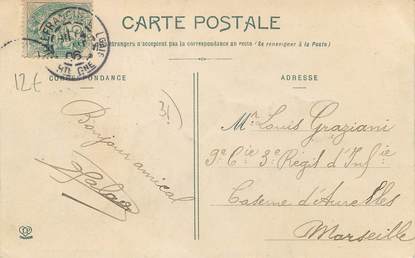 CARTE POSTALE
étrangers n'acceptent pas la correspondance au recto (Se renseigner à la Poste)
CORRESPONDANCE
ADRESSE
12€
Bonjour amical
Mr Louis Graziani
9e Cie 3e Regit d'Infie
Caserne d'Aurelles
Marseille